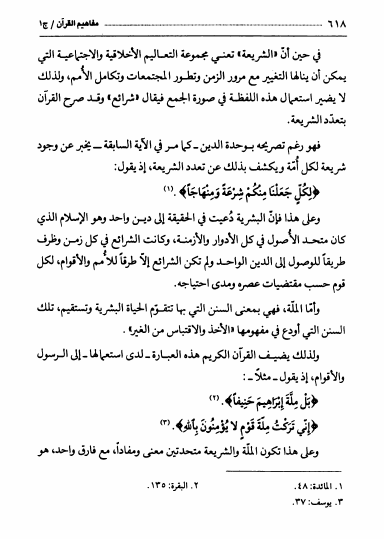 ٦١٨ مفاهيم القرآن / ج١
في حين أنّ «الشريعة» تعني مجموعة التعاليم الأخلاقية والاجتماعية التي
يمكن أن ينالها التغيير مع مرور الزمن وتطور المجتمعات وتكامل الأُمم، ولذلك
لا يضير استعمال هذه اللفظة في صورة الجمع فيقال «شرائع» وقد صرح القرآن
بتعدّد الشريعة.
فهو رغم تصريحه بوحدة الدين ـ كما مر في الآية السابقة ـ يخبر عن وجود
شريعة لكل أُمّة ويكشف بذلك عن تعدد الشريعة، إذ يقول:
﴿لِكُلٍّ جَعَلْنَا مِنكُمْ شِرْعَةً وَمِنْهَاجَاً﴾. (١)
وعلى هذا فإنّ البشرية دُعيت في الحقيقة إلى ديـن واحد وهو الإسلام الذي
كان متحـد الأُصول في كل الأدوار والأزمنـة، وكانت الشرائع في كل زمـن وظرف
طريقاً للوصول إلى الدين الواحـد ولم تكن الشرائع إلاّ طرقاً للأُمم والأقوام، لكل
قوم حسب مقتضيات عصره ومدى احتياجه.
وأمّا الملّة، فهي بمعنى السنن التي بها تتقـوّم الحياة البشرية وتستقيم، تلك
السنن التي أُودع في مفهومها «الأخذ والاقتباس من الغير».
ولذلك يضيـف القرآن الكريم هذه العبـارة ـ لدى استعمالها ـ إلى الرسول
والأقوام، إذ يقول ـ مثلاً ـ :
﴿بَلْ مِلَّةَ إِبْرَاهِيمَ حَنِيفاً﴾. (٢)
﴿إِنِّي تَرَكْتُ مِلَّةَ قَوْمٍ لا يُؤْمِنُونَ بِاللهِ﴾. (٣)
وعلى هذا تكون الملّة والشريعة متحدتين معنى ومفاداً، مع فارق واحد، هو
١. المائدة: ٤٨. ٢. البقرة: ١٣٥.
٣. يوسف: ٣٧.